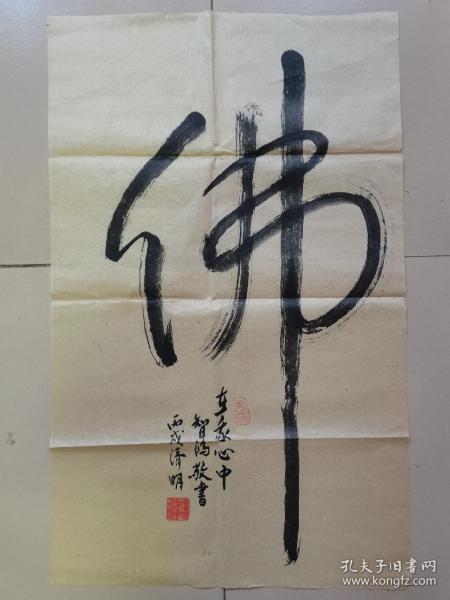 佛
在我心中
智鸿敬书
丙戌清明
孔夫子旧书网
www.kongfz.com